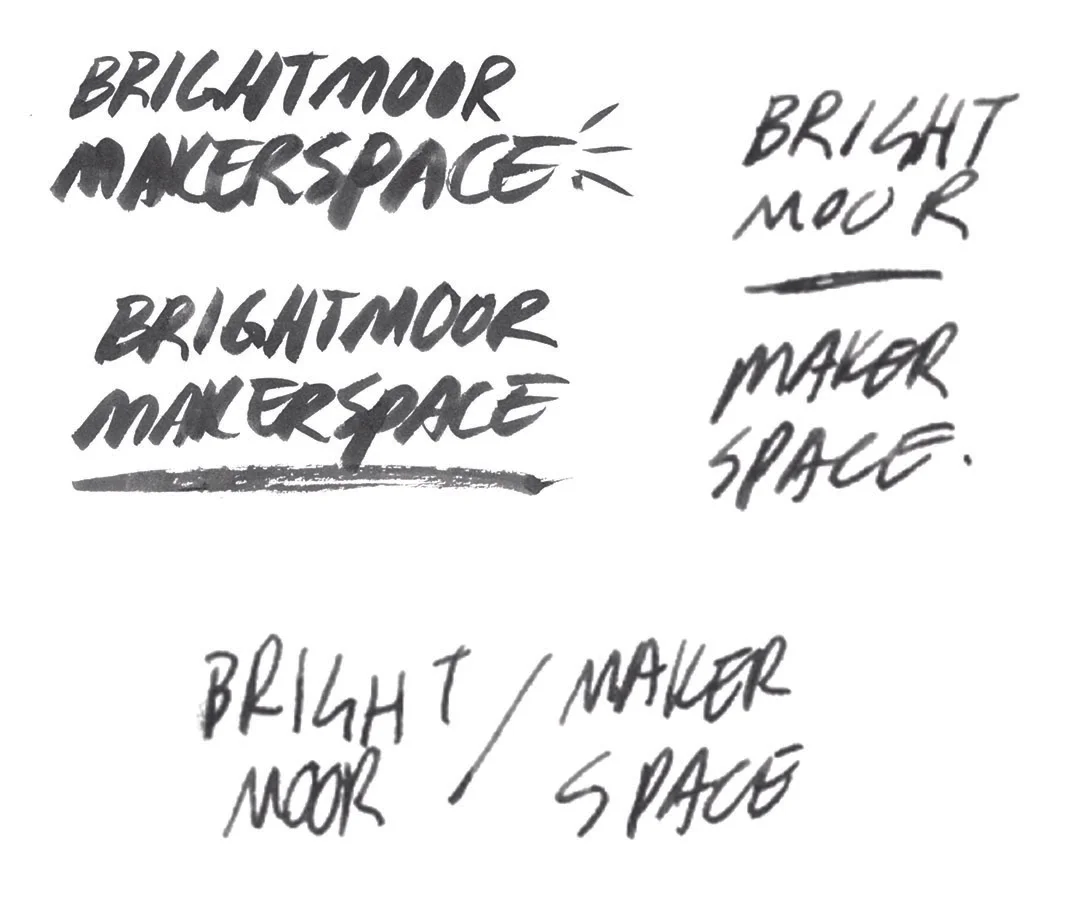 BRIGHTMOOR
MAKERSPACE
BRIGHT
MOOR
MAKER
SPACE.
BRIGHTMOOR
MAKERSPACE
BRIGHT / MAKER
MOOR SPACE